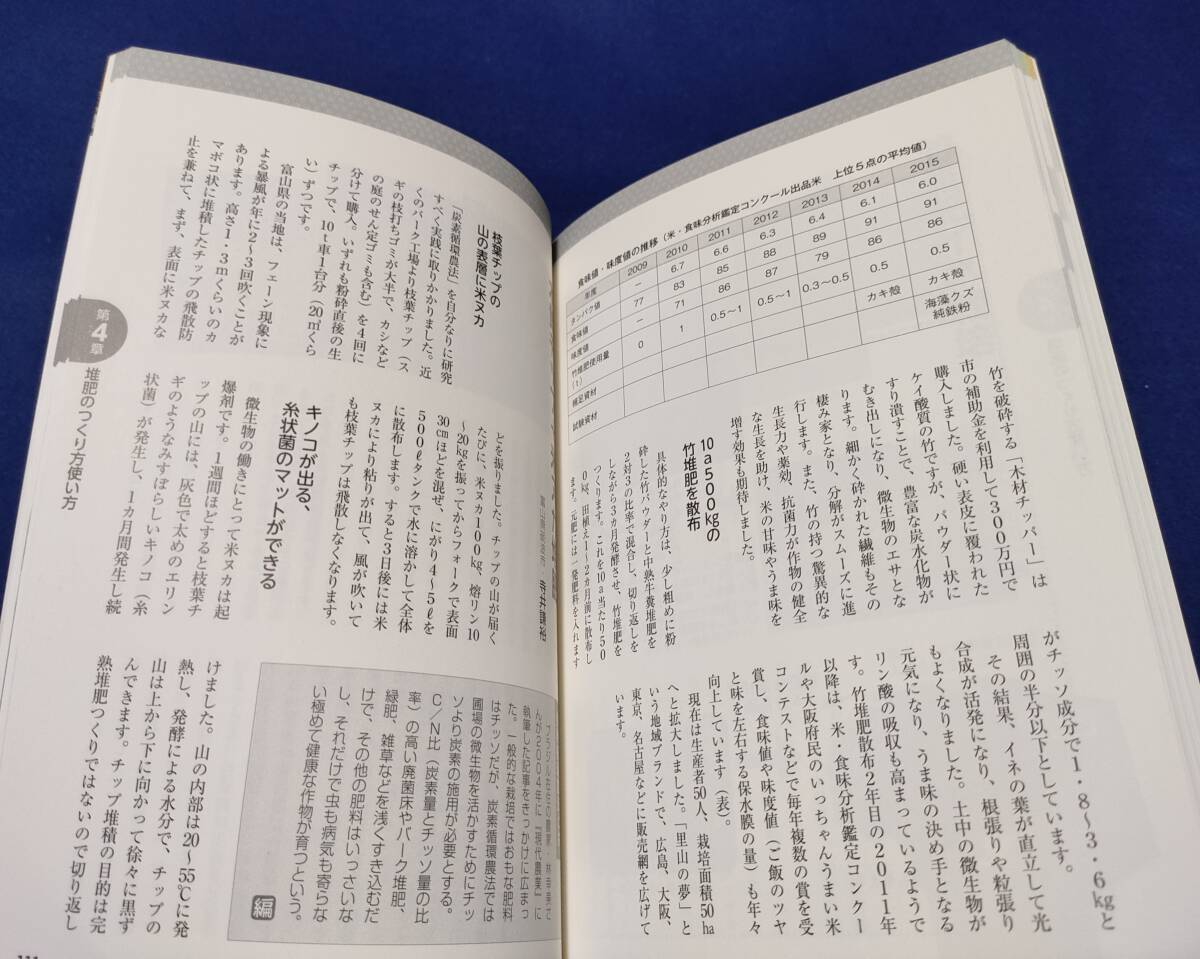 食味値・味度値の推移(米・食味分析鑑定コンクール出品米　上位5点の平均値)
年度 2009 2010 2011 2012 2013 2014 2015
タンパク値 － 6.7 6.6 6.3 6.4 6.1 6.0
食味値 77 83 85 88 89 91 91
味度値 － 71 86 87 79 86 86
竹堆肥使用量(t) 0 1 0.5～1 0.5～1 0.3～0.5 0.5 0.5
補足資材 カキ殻 カキ殻
試験資材 海藻クズ
純鉄粉
竹を破砕する「木材チッパー」は
市の補助金を利用して300万円で
購入しました。硬い表皮に覆われた
ケイ酸質の竹ですが、パウダー状に
すり潰すことで、豊富な炭水化物が
むき出しになり、微生物のエサとな
ります。細かく砕かれた繊維もその
棲み家となり、分解がスムーズに進
行します。また、竹の持つ驚異的な
生長力や薬効、抗菌力が作物の健全
な生長を助け、米の甘味やうま味を
増す効果も期待しました。
10a500kgの
竹堆肥を散布
具体的なやり方は、少し粗めに粉
砕した竹パウダーと中熟牛糞堆肥を
2対3の比率で混合し、切り返しを
しながら3カ月発酵させ、竹堆肥を
つくります。これを10a当たり50
0kg、田植え1～2カ月前に散布し
ます。元肥には一発肥料を入れます
がチッソ成分で1・8～3・6kgと
周囲の半分以下としています。
その結果、イネの葉が直立して光
合成が活発になり、根張りや粒張り
もよくなりました。土中の微生物が
元気になり、うま味の決め手となる
リン酸の吸収も高まっているようで
す。竹堆肥散布2年目の2011年
以降は、米・食味分析鑑定コンクー
ルや大阪府民のいっちゃんうまい米
コンテストなどで毎年複数の賞を受
賞し、食味値や味度値(ご飯のツヤ
と味を左右する保水膜の量)も年々
向上しています(表)。
現在は生産者50人、栽培面積50ha
へと拡大しました。「里山の夢」と
いう地域ブランドで、広島、大阪、
東京、名古屋などに販売網を広げて
います。
枝葉チップの
山の表層に米ヌカ
「炭素循環農法」を自分なりに研究
すべく実践に取りかかりました。近
くのバーク工場より枝葉チップ(ス
ギの枝打ちゴミが大半で、カシなど
の庭のせん定ゴミも含む)を4回に
分けて購入。いずれも粉砕直後の生
チップで、10t車1台分(20㎥くら
い)ずつです。
富山県の当地は、フェーン現象に
よる暴風が年に2～3回吹くことが
あります。高さ1・3mくらいのカ
マボコ状に堆積したチップの飛散防
止を兼ねて、まず、表面に米ヌカな
どを振りました。チップの山が届く
たびに、米ヌカ100kg、熔リン10
～20kgを振ってからフォークで表面
30cmほどを混ぜ、にがり4～5ℓを
500ℓタンクで水に溶かして全体
に散布します。すると3日後には米
ヌカにより粘りが出て、風が吹いて
も枝葉チップは飛散しなくなります。
キノコが出る、
糸状菌のマットができる
微生物の働きにとって米ヌカは起
爆剤です。1週間ほどすると枝葉チ
ップの山には、灰色で太めのエリン
ギのようなみすぼらしいキノコ(糸
状菌)が発生し、1カ月間発生し続
けました。山の内部は20～55℃に発
熱し、発酵による水分で、チップの
山は上から下に向かって徐々に黒ず
んできます。チップ堆積の目的は完
熟堆肥つくりではないので切り返し
んが2004年に『現代農業』に
執筆した記事をきっかけに広まっ
た。一般的な栽培ではおもな肥料
はチッソだが、炭素循環農法では
圃場の微生物を活かすためにチッ
ソより炭素の施用が必要とする。
C/N比(炭素量とチッソ量の比
率)の高い廃菌床やバーク堆肥、
緑肥、雑草などを浅くすき込むだ
けで、その他の肥料はいっさいな
し、それだけで虫も病気も寄らな
い極めて健康な作物が育つという。
編
第4章
堆肥のつくり方使い方